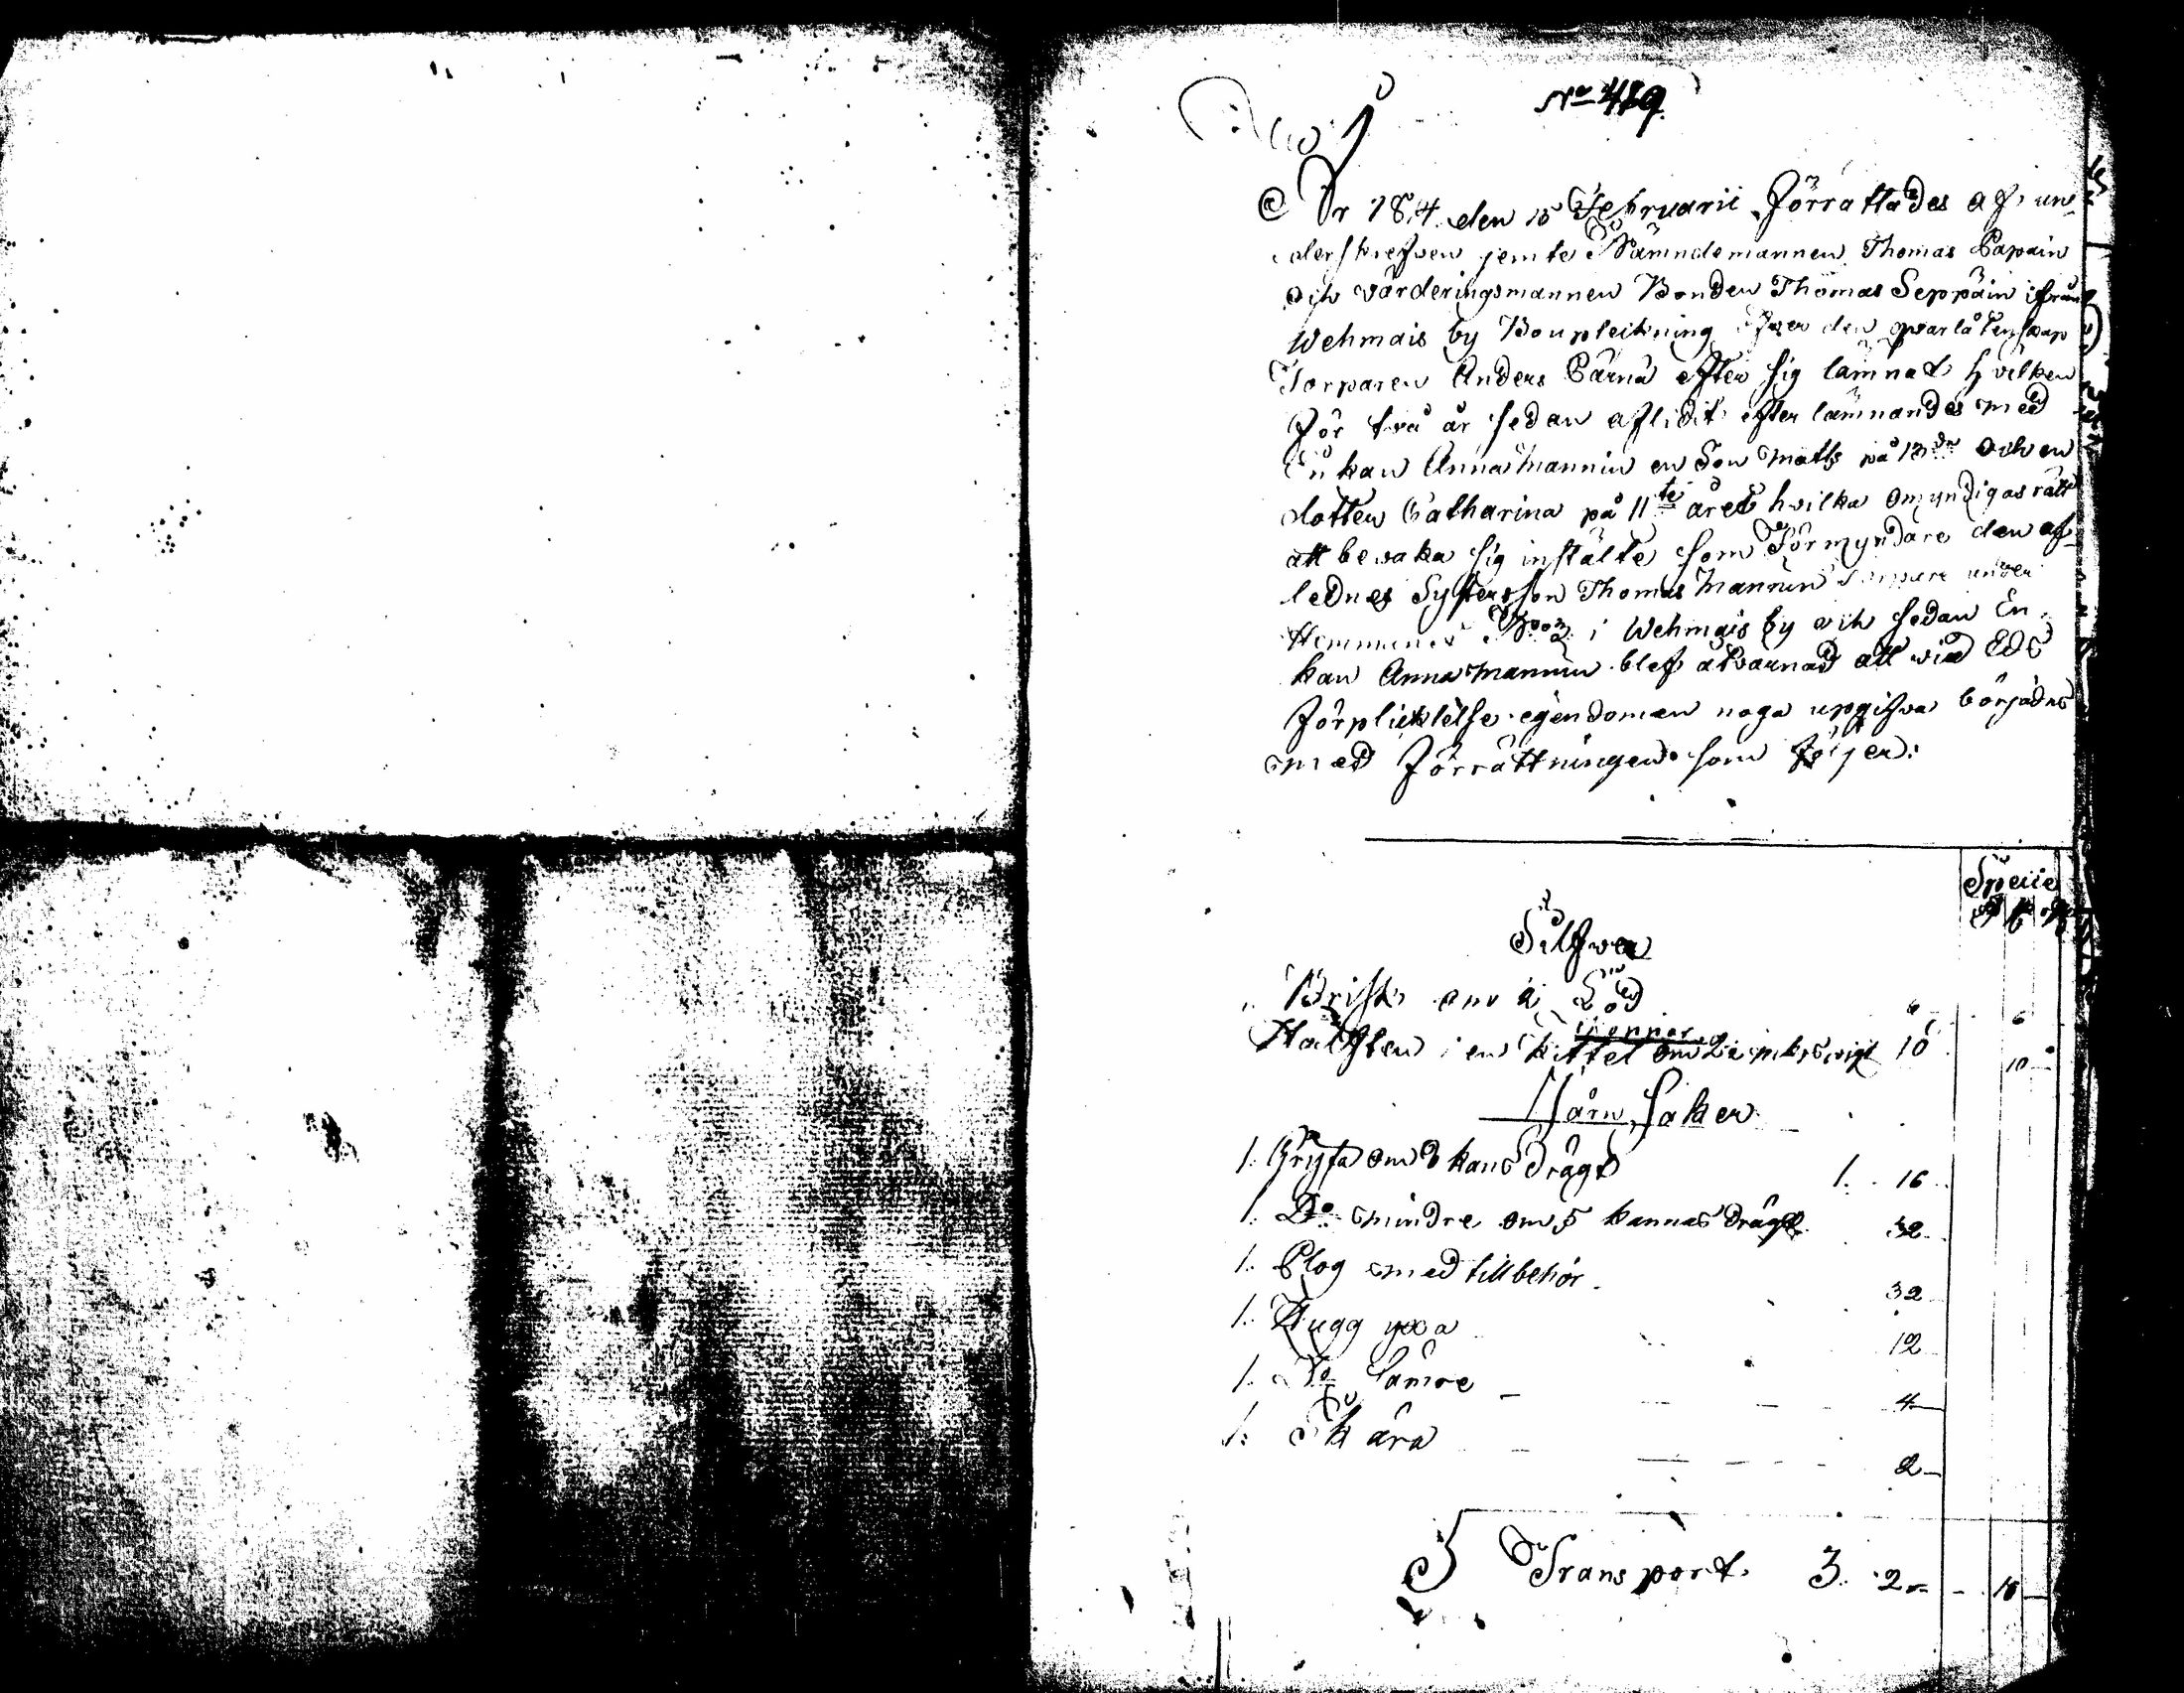 No 489
År 1814 den 15 Februarii Förrattades af un-
derskrefven jemte Nämndemannen Thomas Papain
och värderingsmannen Bonden Thomas Seppäin ifrån
Wehmais by Boupteckning öfwer den qvarlåtenskap
Torparen Anders Pärnä efter sig lämnat hvilken
För två år sedan aflidit efter lämnandes med
Enkan Anna Mannin en Son Matts på 13de och en
dotter Catharina på 11te året hvilka omyndigas rätt
att bevaka sig instälte som Förmyndare den af-
lednes Systerson Thomas Mannin Torpare under
Hemmanet No 2 i Wehmais by och sedan En-
kan Anna Mannin blef åtvarnad att wid Eds
Förplicktelse egendomen noga upgifva börjades
med Förrättningen som Föijer:
Specie
Silfwer
1. Brisk om 2 Lod 6 6
Halften i en kopper kittel om 10 10
Järn Saker
1. Gryta om 8 kans drägt 1. 16
1. Do mindre om 5 kannas drägt 32
1. Plog med tillbehör 32
1. Hugg yxa 12
1. Do Sämre 4
1. Skära 2
Transport 3. 2 16